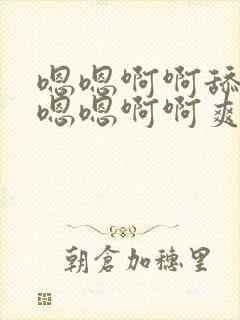 嗯嗯啊啊舔
嗯嗯啊啊爽
朝倉加穗里